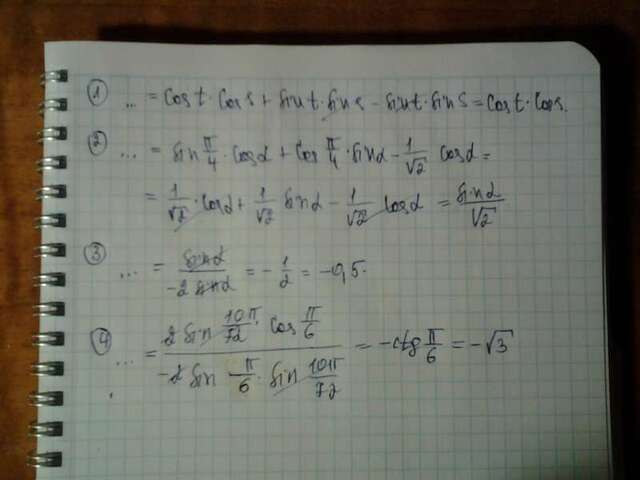 ① ... = cos t · cos s + sin t · sin s − sin t · sin s = cos t · cos s.
② ... = sin π/4 · cos α + cos π/4 · sin α − 1/√2 cos α =
= 1/√2 · cos α + 1/√2 sin α − 1/√2 cos α = sin α/√2
③ ... = sin α/−2 sin α = −1/2 = −0,5.
④ ... = 2 sin 10π/72 · cos π/6 / −2 sin π/6 · sin 10π/72 = −ctg π/6 = −√3